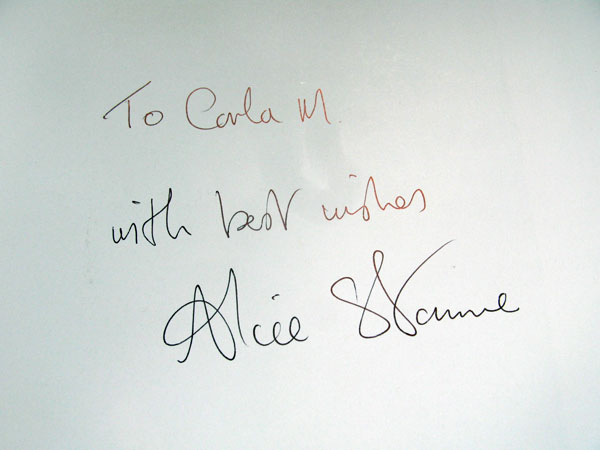 To Carla M.
with best wishes
Alice